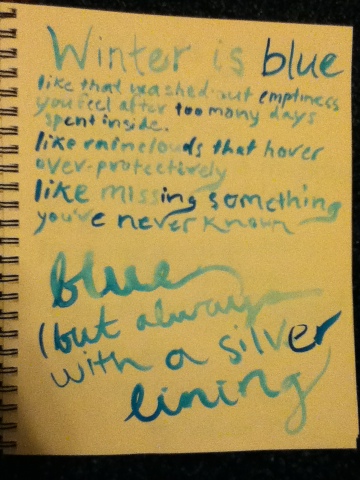 Winter is blue
like that washed-out emptiness
you feel after too many days
spent inside.
like rainclouds that hover
over-protectively
like missing something
you've never known
blue
(but always
with a silver
lining)